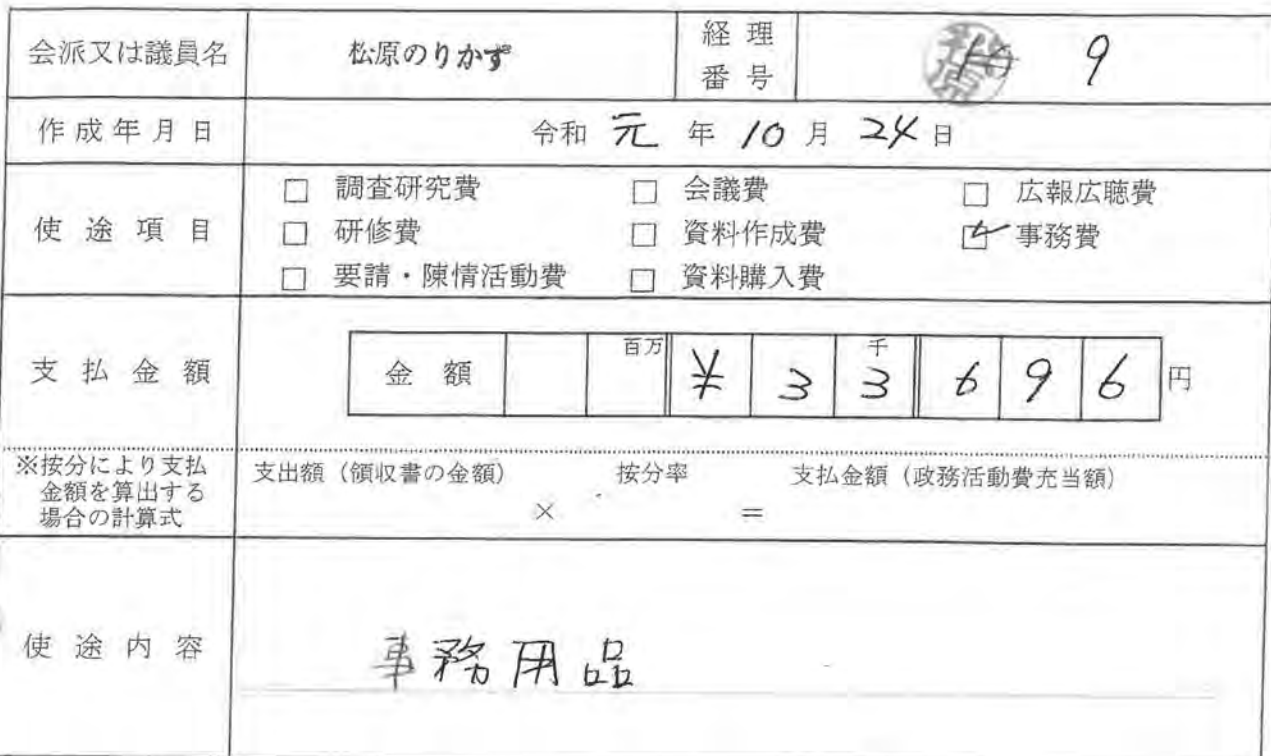 会派又は議員名 松原のりかず 経理番号 9
作成年月日 令和 元 年 10 月 24 日
使途項目 □ 調査研究費 □ 会議費 □ 広報広聴費
□ 研修費 □ 資料作成費 ☑ 事務費
□ 要請・陳情活動費 □ 資料購入費
支払金額 金額 百万 ¥ 3 千 3 6 9 6 円
※按分により支払金額を算出する場合の計算式 支出額（領収書の金額） 按分率 支払金額（政務活動費充当額）
× ＝
使途内容 事務用品